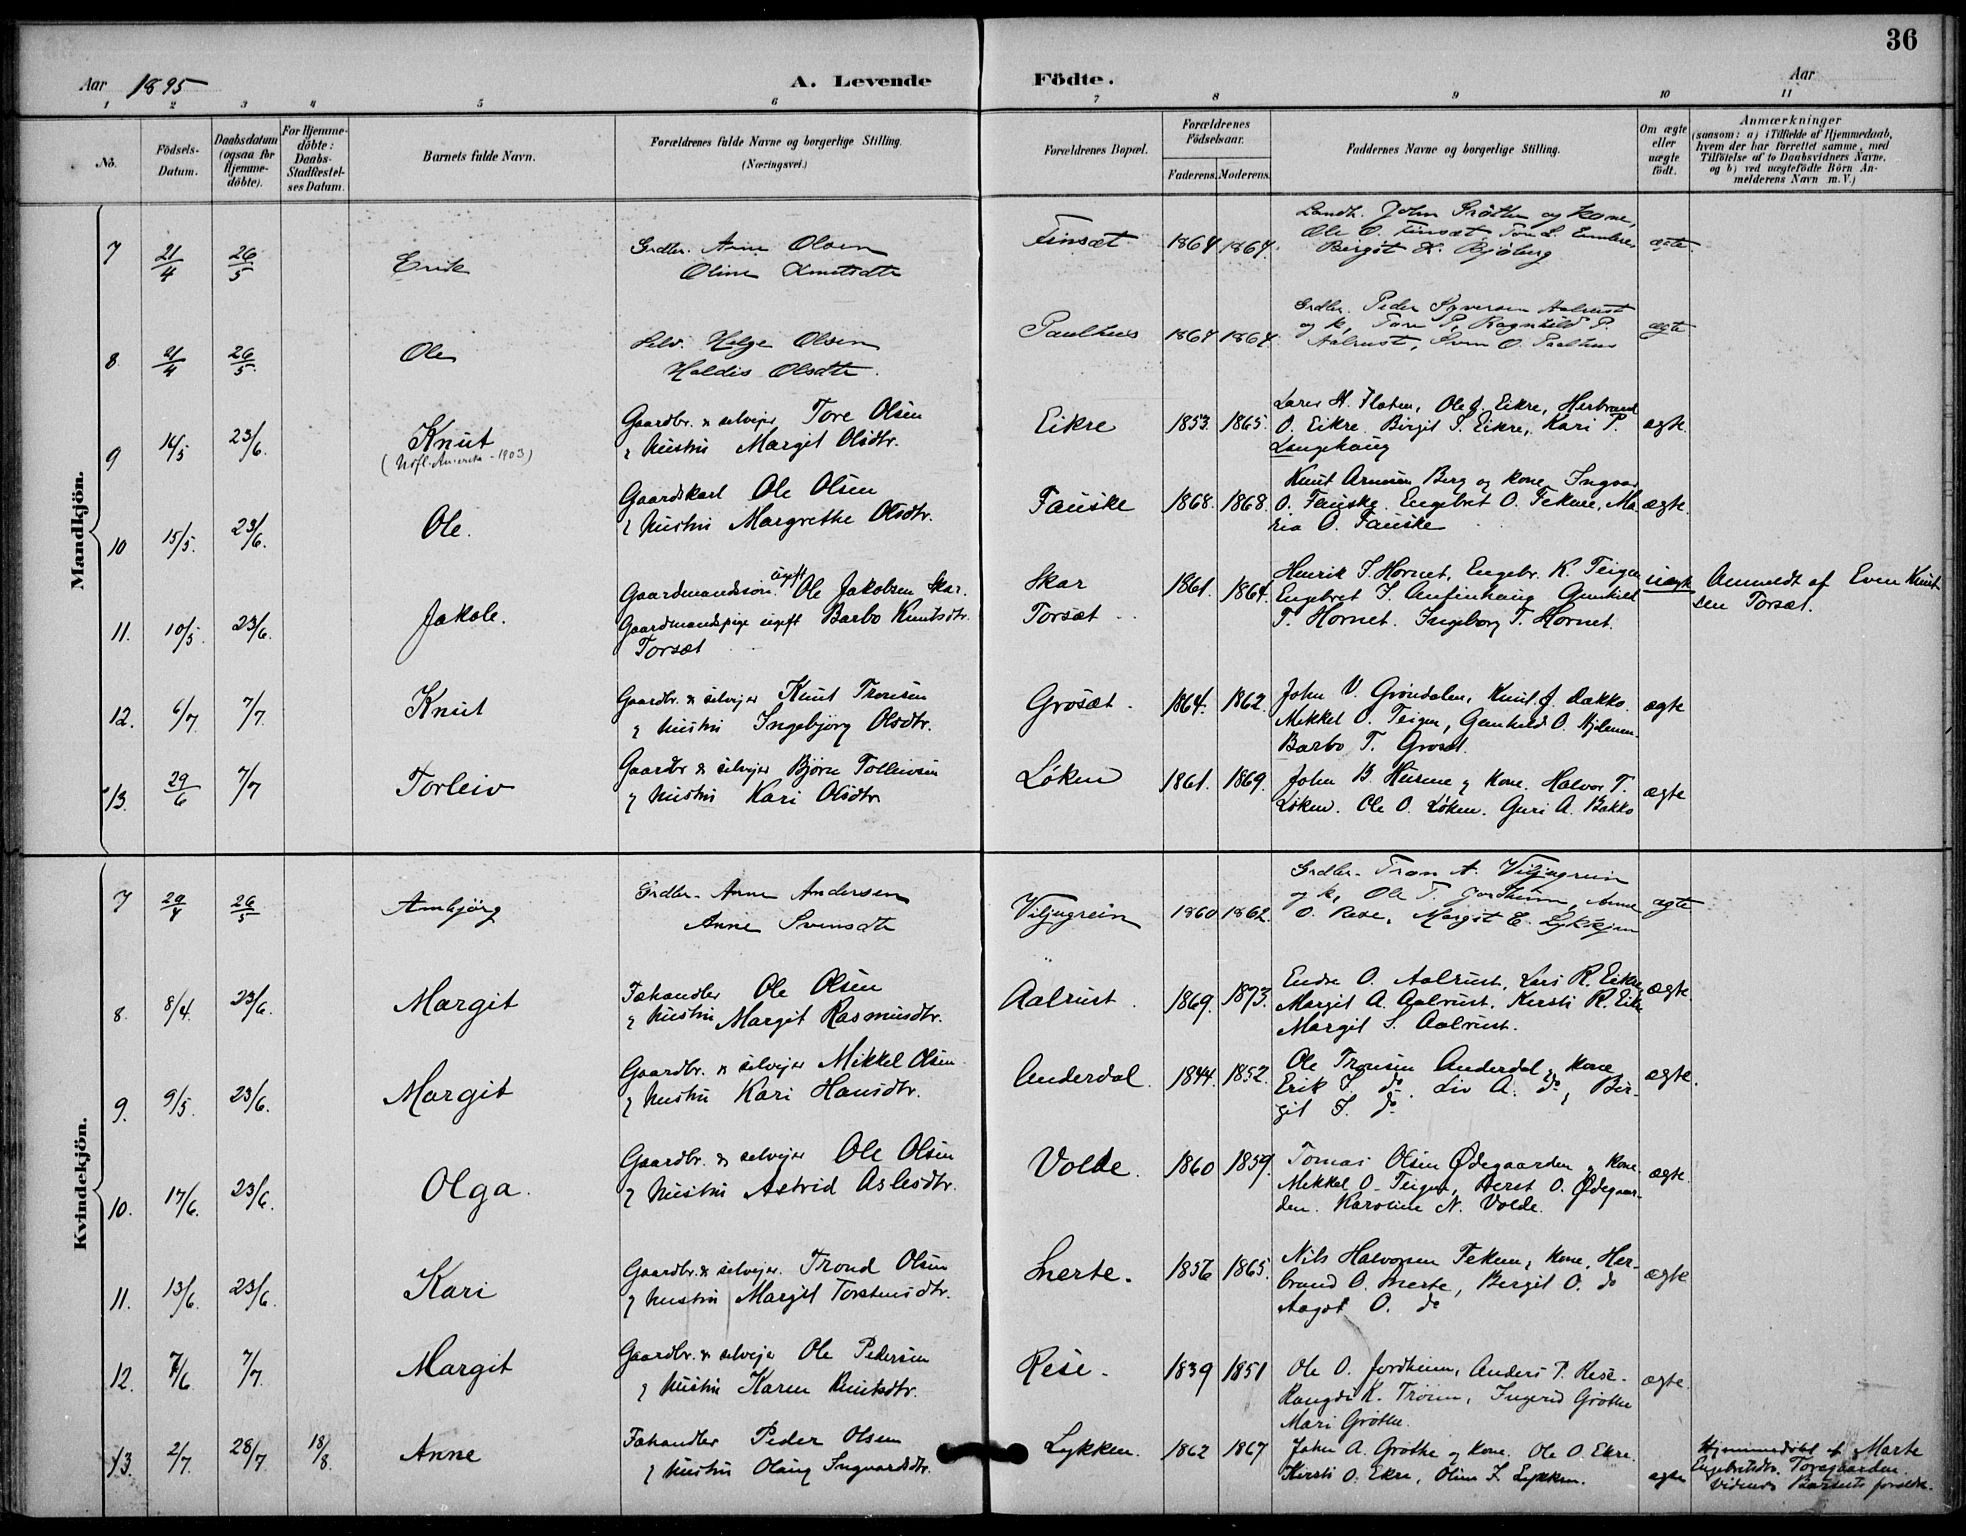 36
Aar 1895 A. Levende Födte. Aar
1 2 3 4 5 6 7 8 9 10 11
No.
Födsels-
Datum.
Daabsdatum
(ogsaa for
Hjemme-
döbte).
For Hjemme-
döbte:
Daabs-
Stadfæstel-
ses Datum.
Barnets fulde Navn.
Forældrenes fulde Navne og borgerlige Stilling.
(Næringsvei.)
Forældrenes Bopæl.
Forældrenes
Födselsaar.
Faderens. Moderens.
Faddernes Navne og borgerlige Stilling.
Om ægte
eller
uægte
födt.
Anmærkninger
(saasom: a) i Tilfælde af Hjemmedaab,
hvem der har forrettet samme, med
Tilföielse af to Daabsvidners Navne.
og b) ved uægtefödte Börn An-
melderens Navn m. V.)
Mandkjön.
7 21/4 26/5 Erik
Grdbr. Arne Olsen
Oline Knutsdtr
Finsæt 1864 1864.
Landh. John Grøthe og kone,
Ole O. Finsæt
Birgit K. Bjøberg
ægte
8 21/4 26/5 Ole
Selv. Helge Olsen
Haldis Olsdtr.
Paulhus 1864 1864.
Grdbr. Peder Syversen Aalrust
og k, Tore P, Ragnhild P.
Aalrust, Sven O. Paulhus
ægte
9 14/5 23/6. Knut
(Utfl. Amerika - 1903)
Gaardbr. & selvejer Tore Olsen
& hustru Margit Olsdtr.
Eikre 1853. 1865.
Lars H. Flaten, Ole O. Eikre, Herbrand
O. Eikre. Birgit S. Eikre, Kari P.
Langehaug
ægte.
10 15/5. 23/6. Ole.
Gaardskarl Ole Olsen
& hustru Margrethe Olsdtr.
Fauske 1868. 1868.
Knut Arnesen Berg og kone, Ingvar
O. Fauske, Engebret O. Fekene, Ma
ria O. Fauske
ægte.
11. 10/5. 23/6. Jakob.
Gaardmandssøn ugift Ole Jakobsen Skar.
Gaardmandspige ugift Barbo Knutsdtr.
Torsæt
Skar
Torsæt
1861. 1864.
Henrik T. Hornet, Engebr. K. Teigen
Engebret J. Anfinhaug Gunhild
T. Hornet. Ingeborg T. Hornet.
uægte
Anmeldt af Even Knut
sen Torsæt.
12. 6/7 7/7. Knut
Gaardbr. & selvejer Knut Tronsen
& hustru Ingebjørg Olsdtr.
Grøsæt 1864. 1862.
John V. Grøndalen, Knut J. Bakko.
Mekkel O. Teigen, Gunhild O. Hjelmen.
Barbo T. Grøsæt.
ægte
13. 29/6 7/7 Torleiv
Gaardbr & selvejer Bjørn Tolleivsen
& hustru Kari Olsdtr
Løken 1861. 1869.
John B. Husme & kone. Halvor T.
Løken. Ole O. Løken. Guri A. Bakko
ægte
Kvindekjön.
7 29/4 26/5 Ambjørg
Grdbr. Arne Andersen
Anne Svensdtr
Viljugrein 1860 1862.
Grdbr. Tron A. Viljugrein
og k, Ole T. Jordheim, Anne
O. Rese, Margit E. Lykkjen
ægte
8. 8/4. 23/6. Margit
Fæhandler Ole Olsen
& hustru Margit Rasmusdtr.
Aalrust 1869. 1873.
Endre O. Aalrust, Lars R. Eikre,
Margit A. Aalrust. Kersti R. Eikre
Margit S. Aalrust.
ægte
9. 9/5. 23/6. Margit
Gaardbr. & selvejer Mikkel Olsen
& hustru Kari Hansdtr.
Anderdal. 1844. 1852.
Ole Tronsen Anderdal & kone
Erik T. do. Liv A. do, Bir-
git T. do
ægte.
10. 17/6. 23/6. Olga.
Gaardbr. & selvejer Ole Olsen
& hustru Astrid Aslesdtr.
Volde. 1860 1859.
Tomas Olsen Ødegaarden & kone
Mekkel O. Teigen, Beret O. Ødegaar-
den. Karoline N. Volde.
ægte.
11. 13/6. 23/6. Kari
Gaardbr. & selvejer. Trond Olsen
& hustru Margit Torstensdtr.
Snerte. 1856 1865.
Nils Halvorsen Fekene, kone, Her-
brand O. Snerte, Bergit O. do
Aagot O. do
ægte
12. 7/6. 7/7. Margit
Gaardbr. & selvejer Ole Pedersen
& hustru Karen Knutsdtr.
Rese. 1839 1851
Ole O. Jordheim, Anders P. Rese.
Rangdi K. Trøim, Ingerid Grøthe
Mari Grøthe.
ægte.
13. 2/7. 28/7. 18/8. Anne
Fæhandler Peder Olsen
& hustru Olaug Ingvardsdtr.
Lykken. 1862 1867
John A. Grøthe og kone. Ole O. Ekre.
Kersti O. Ekre, Oline T. Lykken.
ægte
Hjemmedøbt af Marte
Engebretsdtr. Torsgaarden.
Vidner Barnets forældre.